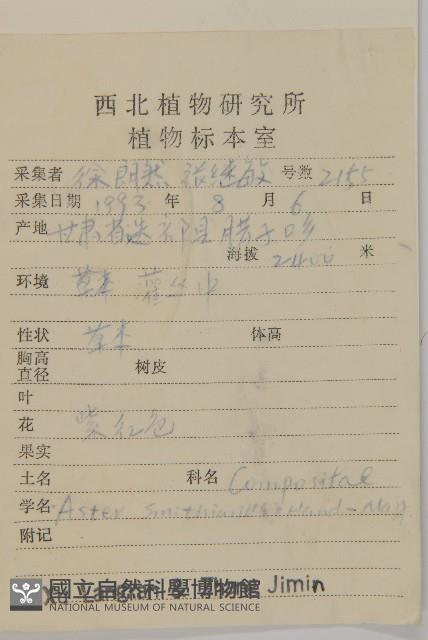 西北植物研究所
植物标本室
采集者 徐朗然 张继敏 号数 2155
采集日期 1993 年 8 月 6 日
产地 甘肃省迭部县腊子口
海拔 2400 米
环境 草本 灌丛中
性状 草本 体高
胸高直径 树皮
叶
花 紫红色
果实
土名 科名 Compositae
学名 Aster smithianus Hand-Maz.
附记
Xu Langran & Zhang Jimin
國立自然科學博物館
NATIONAL MUSEUM OF NATURAL SCIENCE